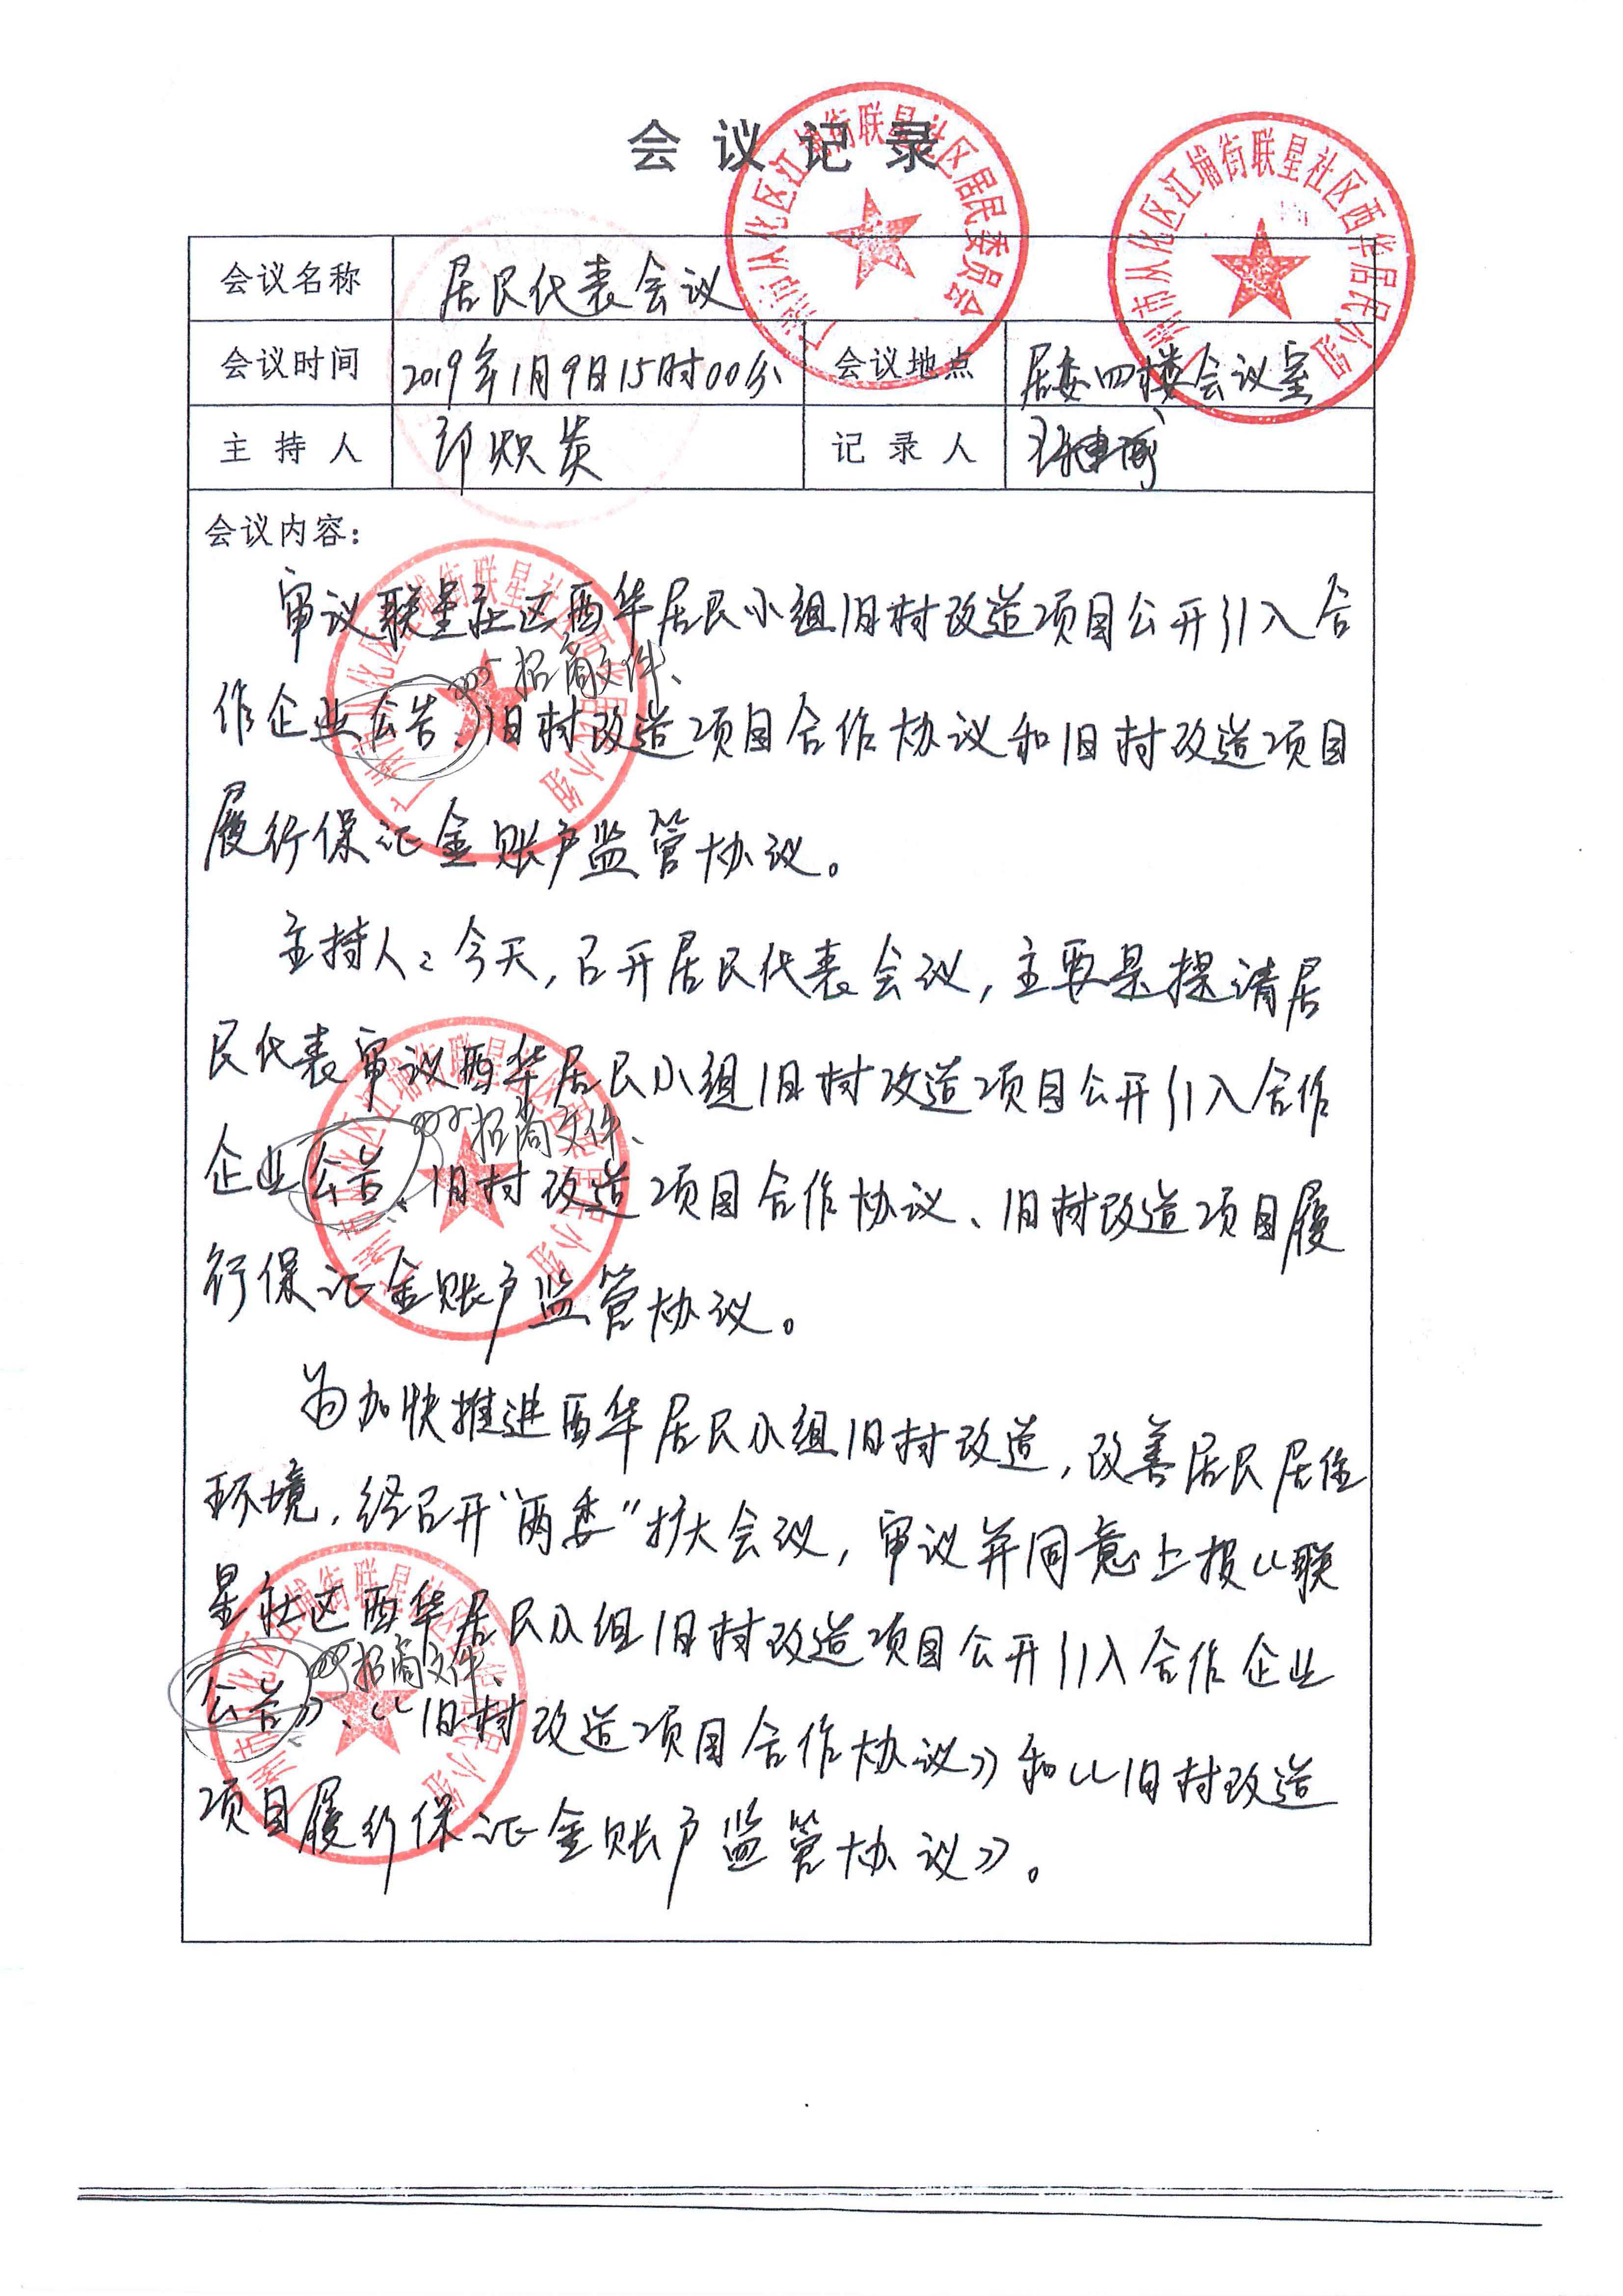 会议记录
广州市从化区江埔街联星社区居民委员会
广州市从化区江埔街联星社区西华居民小组
会议名称 居民代表会议
会议时间 2019年1月9日15时00分 会议地点 居委四楼会议室
主持人 记录人
会议内容:
审议联星社区西华居民小组旧村改造项目公开引入合
招商文件、
作企业公告、旧村改造项目合作协议和旧村改造项目
履行保证金账户监管协议。
广州市从化区江埔街联星社区西华居民小组
主持人:今天,召开居民代表会议,主要是提请居
民代表审议西华居民小组旧村改造项目公开引入合作
招商文件、
企业公告、旧村改造项目合作协议、旧村改造项目履
行保证金账户监管协议。
广州市从化区江埔街联星社区西华居民小组
为加快推进西华居民小组旧村改造,改善居民居住
环境,经召开“两委”扩大会议,审议并同意上报《联
星社区西华居民小组旧村改造项目公开引入合作企业
招商文件、
公告》、《旧村改造项目合作协议》和《旧村改造
项目履行保证金账户监管协议》。
广州市从化区江埔街联星社区西华居民小组